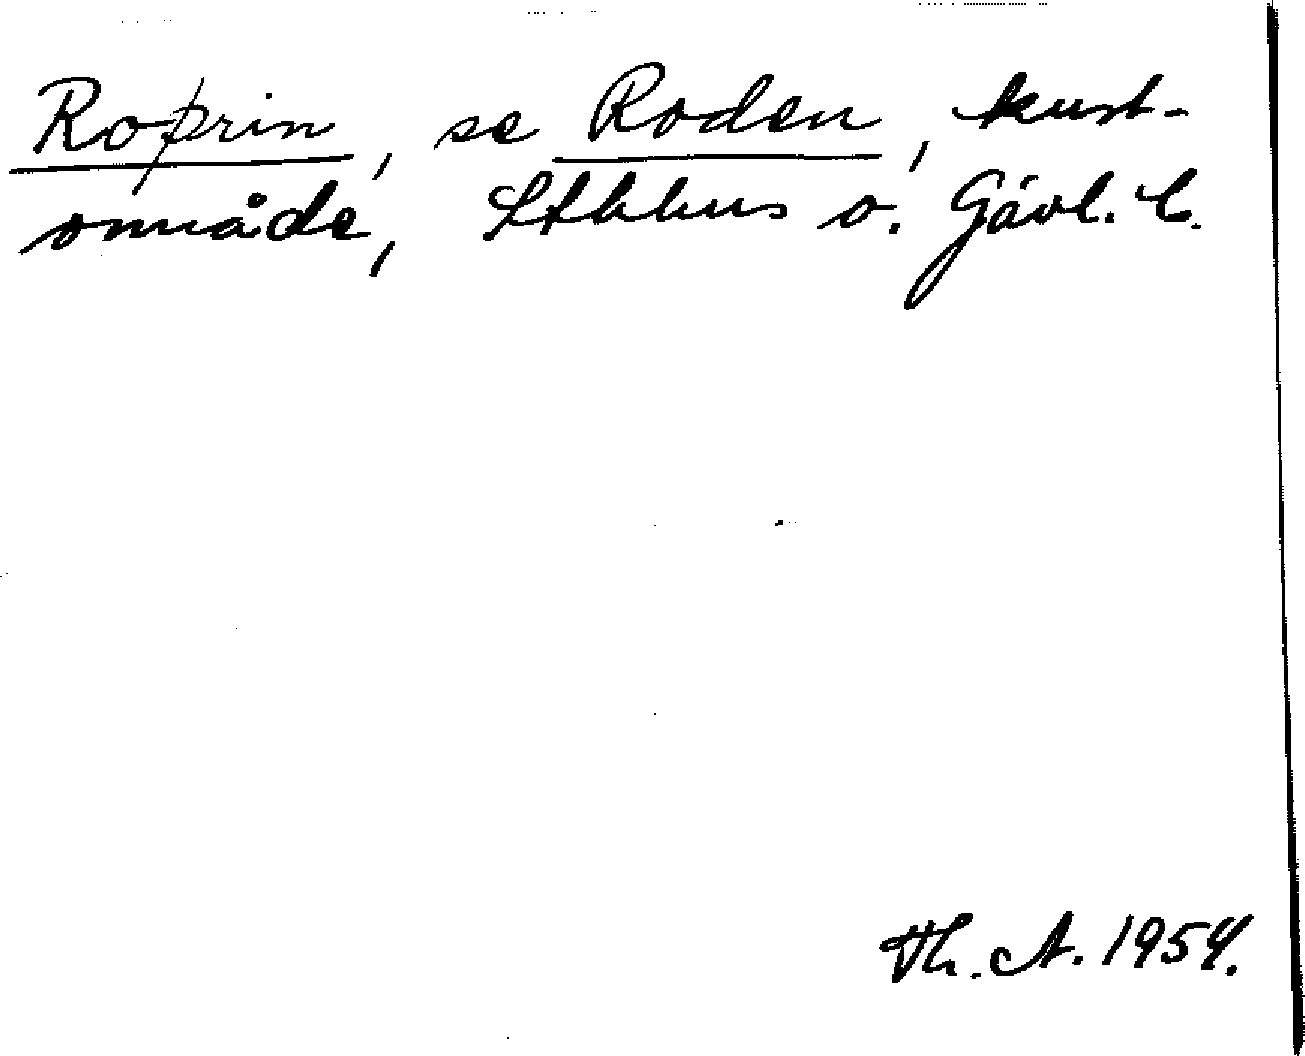 Roþrin, se Roden, kust-
område, Sthlms o. Gävl. l.
Th. A. 1954.